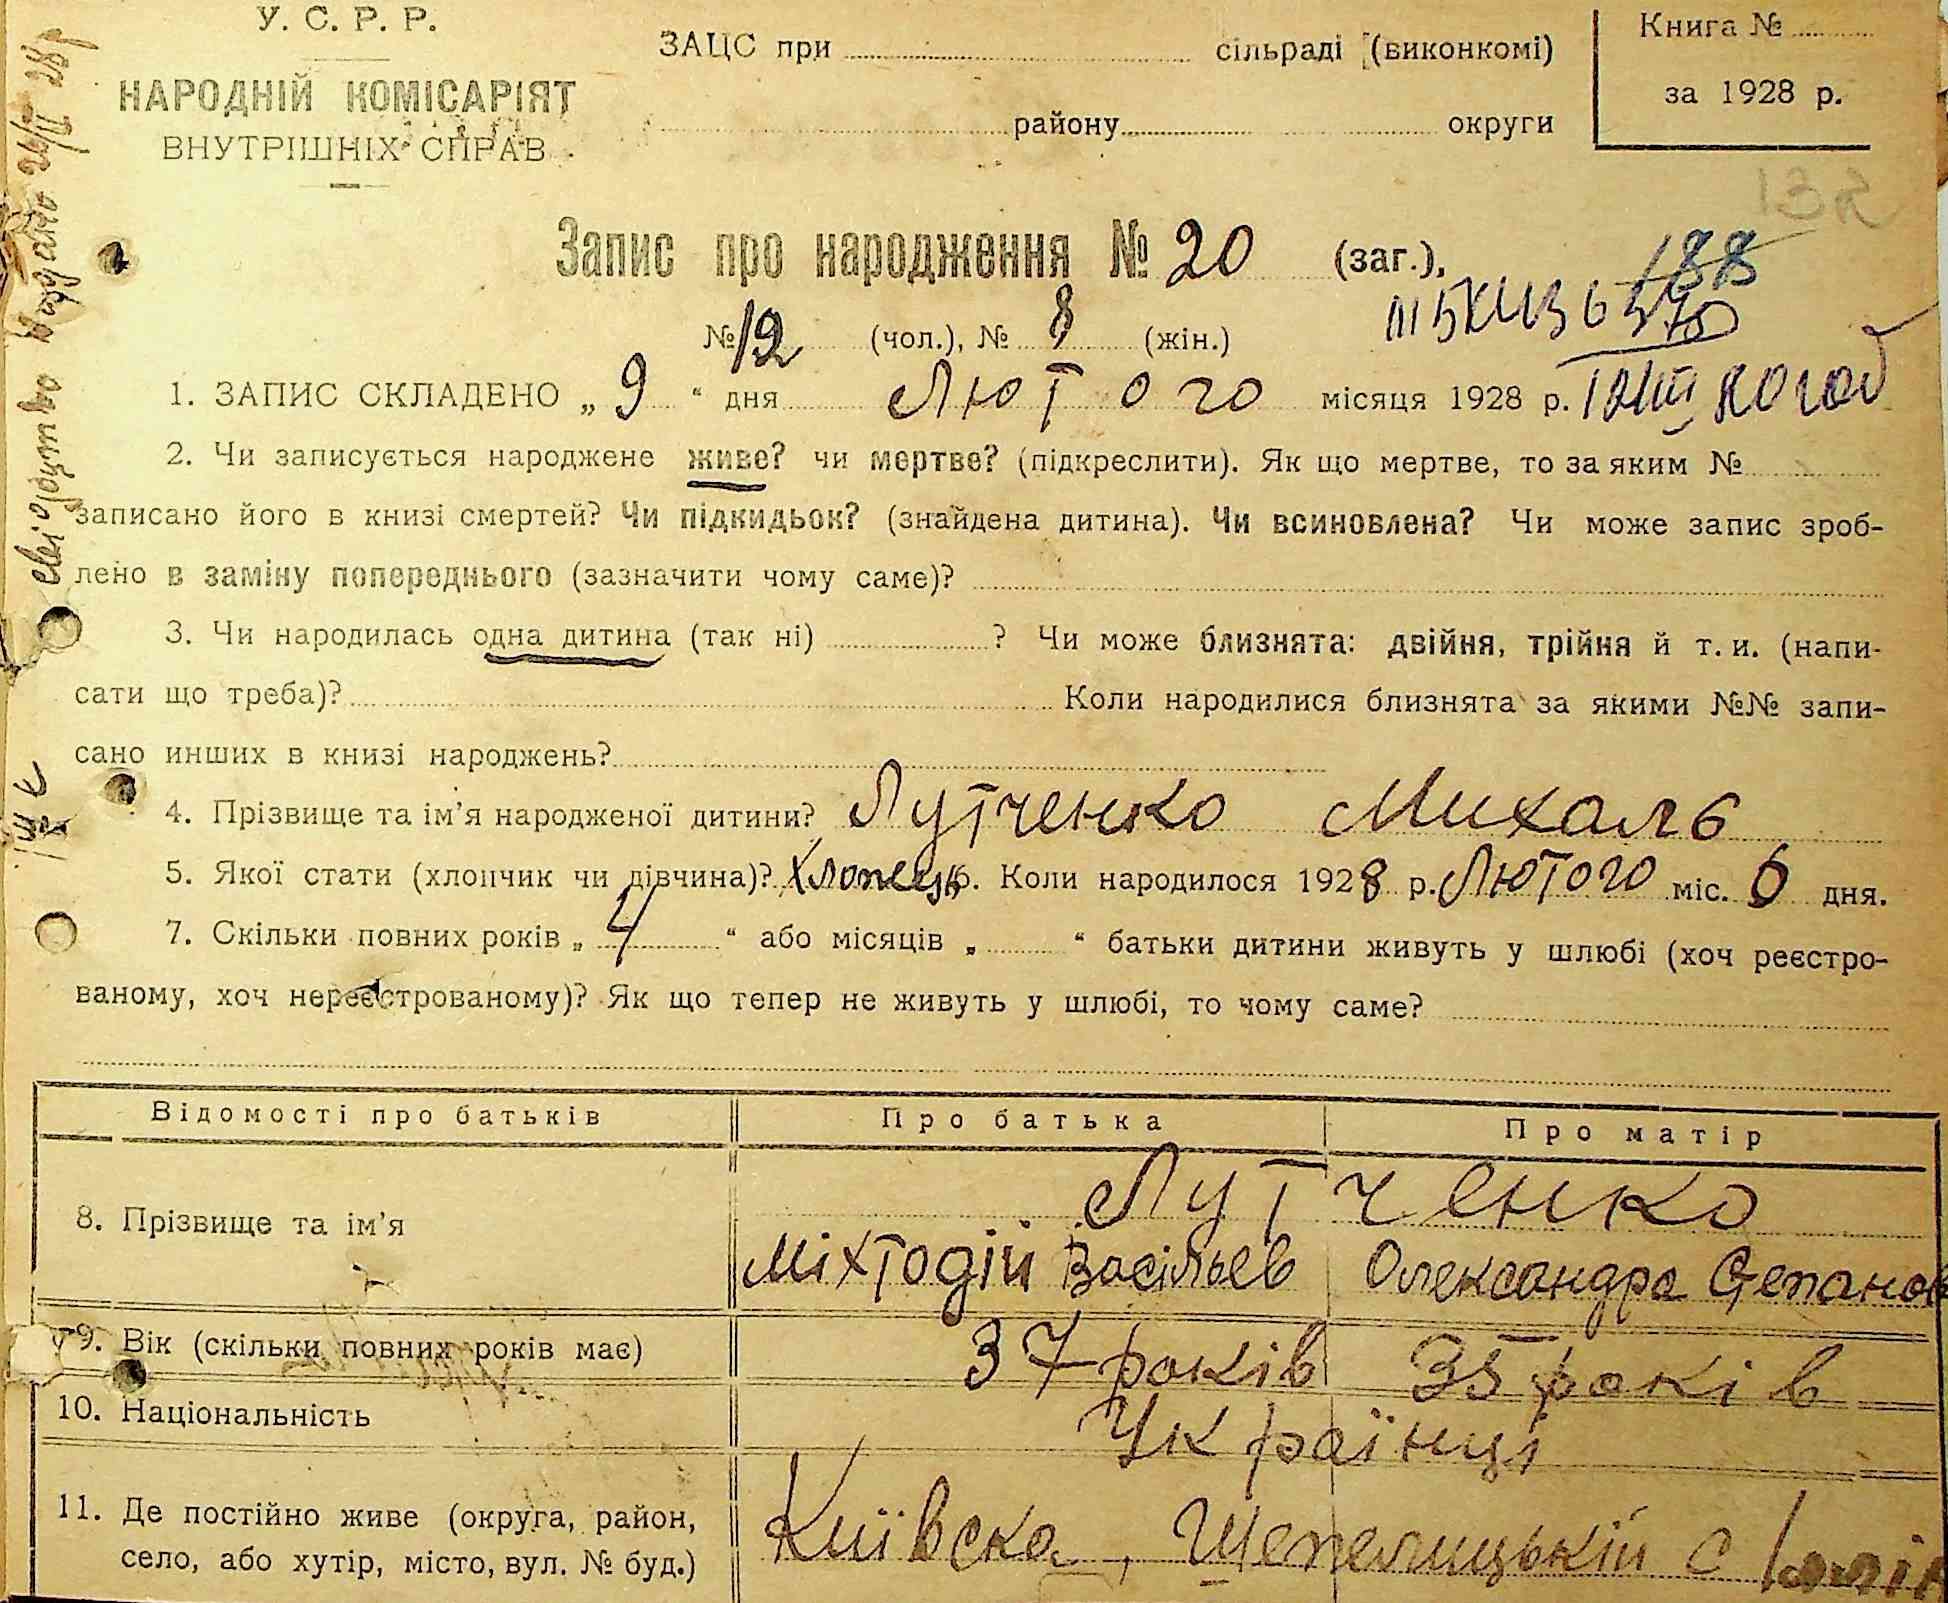 У. С. Р. Р.
НАРОДНІЙ КОМІСАРІЯТ
ВНУТРІШНІХ СПРАВ
ЗАЦС при сільраді (виконкомі)
району округи
Книга №
за 1928 р.
132
Запис про народження № 20 (заг.),
188
№ 12 (чол.), № 8 (жін.)
1. ЗАПИС СКЛАДЕНО „ 9 “ дня Лютого місяця 1928 р.
2. Чи записується народжене живе? чи мертве? (підкреслити). Як що мертве, то за яким №
записано його в книзі смертей? Чи підкидьок? (знайдена дитина). Чи всиновлена? Чи може запис зроб-
лено в заміну попереднього (зазначити чому саме)?
3. Чи народилась одна дитина (так ні) ? Чи може близнята: двійня, трійня й т. и. (напи-
сати що треба)? Коли народилися близнята за якими №№ запи-
сано инших в книзі народжень?
4. Прізвище та ім’я народженої дитини? Лутченко Михаль
5. Якої стати (хлопчик чи дівчина)? Хлопець 6. Коли народилося 1928 р. Лютого міс. 6 дня.
7. Скільки повних років „ 4 “ або місяців „ “ батьки дитини живуть у шлюбі (хоч реєстро-
ваному, хоч нереєстрованому)? Як що тепер не живуть у шлюбі, то чому саме?
Відомості про батьків Про батька Про матір
8. Прізвище та ім’я Лутченко
Міхтодій Васільев Олександра Степанов
9. Вік (скільки повних років має) 37 років 35 років
10. Національність Українці
11. Де постійно живе (округа, район,
село, або хутір, місто, вул. № буд.)
Київска, Шепелицькій с
свідоцтво видано 24/ІІ 28 р